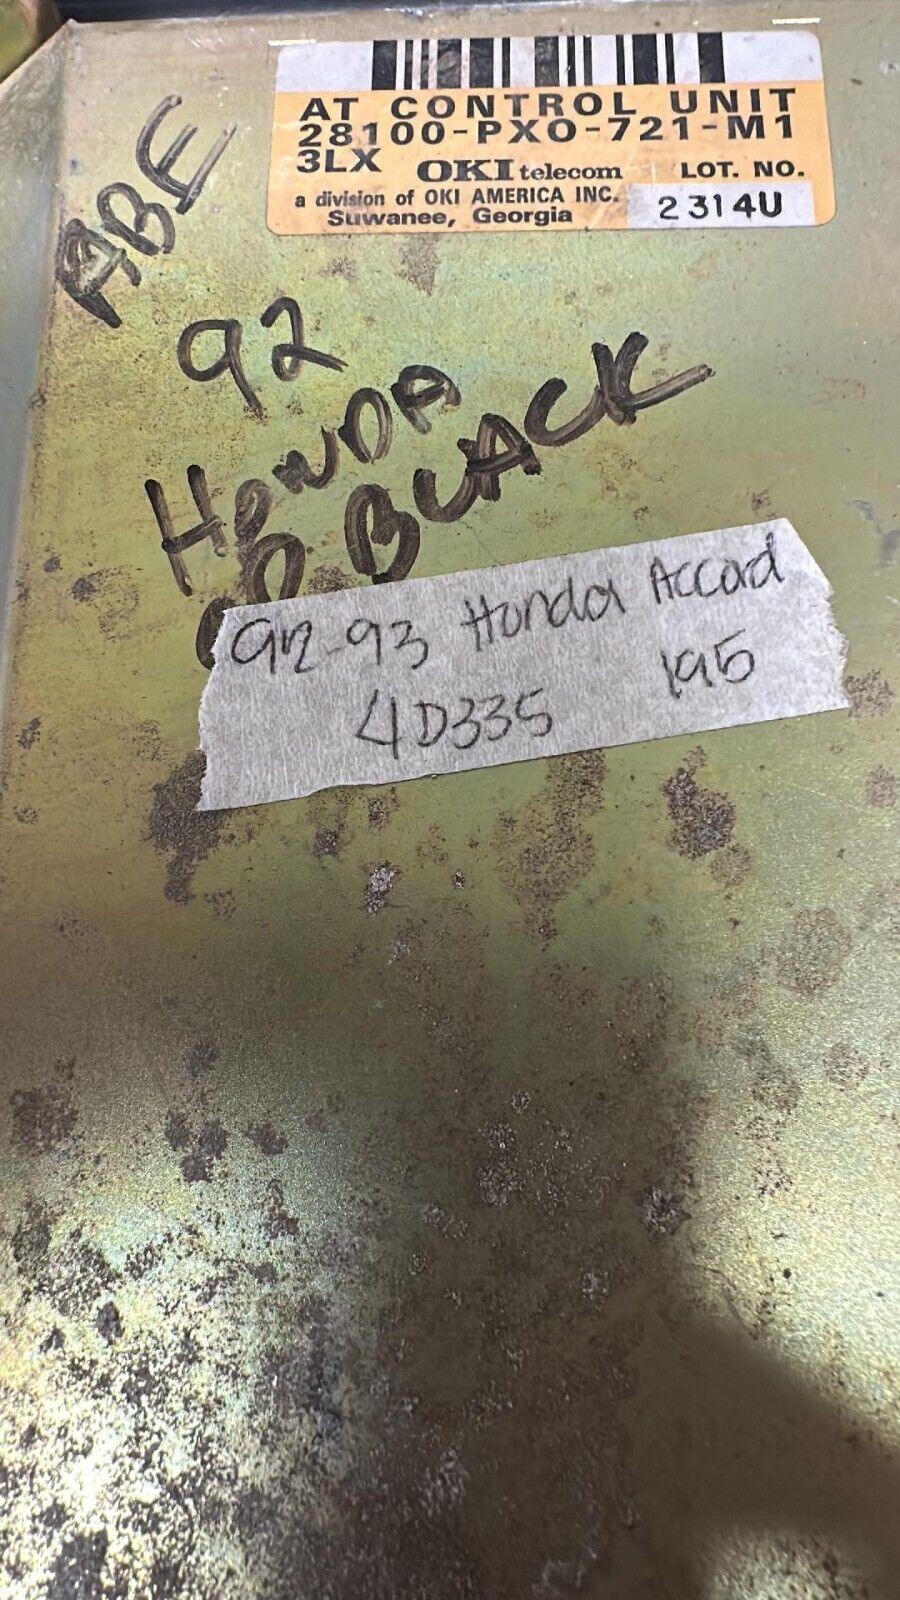 AT CONTROL UNIT
28100-PXO-721-M1
3LX OKI telecom LOT. NO.
a division of OKI AMERICA INC. 2314U
Suwanee, Georgia
ABE
92
HONDA
BLACK
92-93 Honda Accord
4D335 195